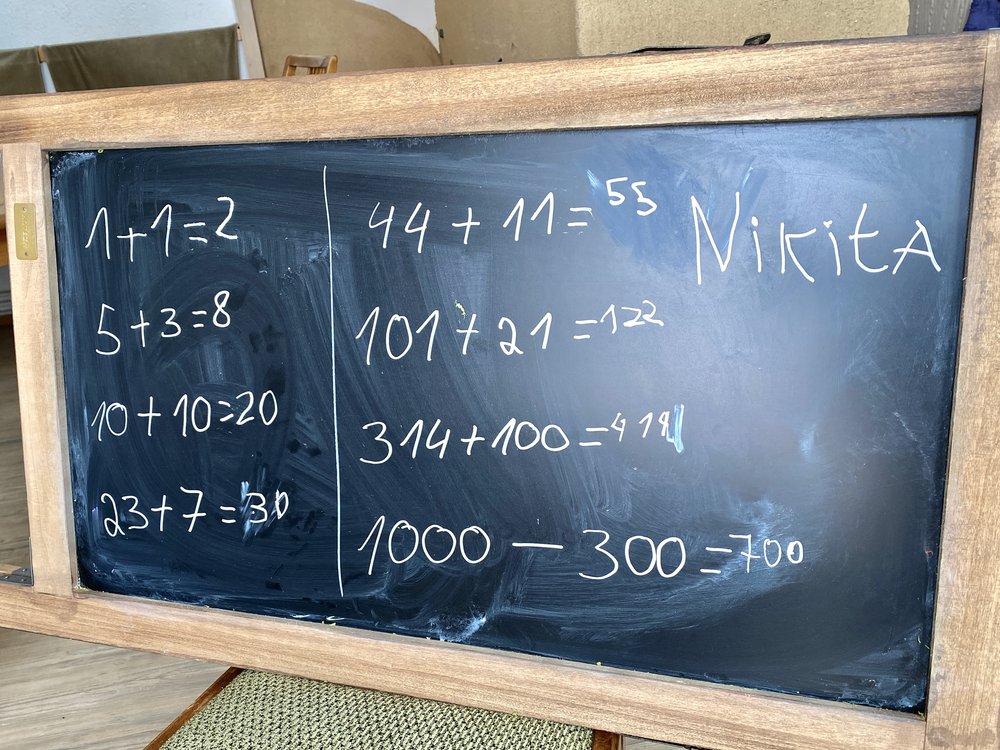 1+1=2
5+3=8
10+10=20
23+7=30
44+11=55
101+21=122
314+100=414
1000-300=700
NikitA